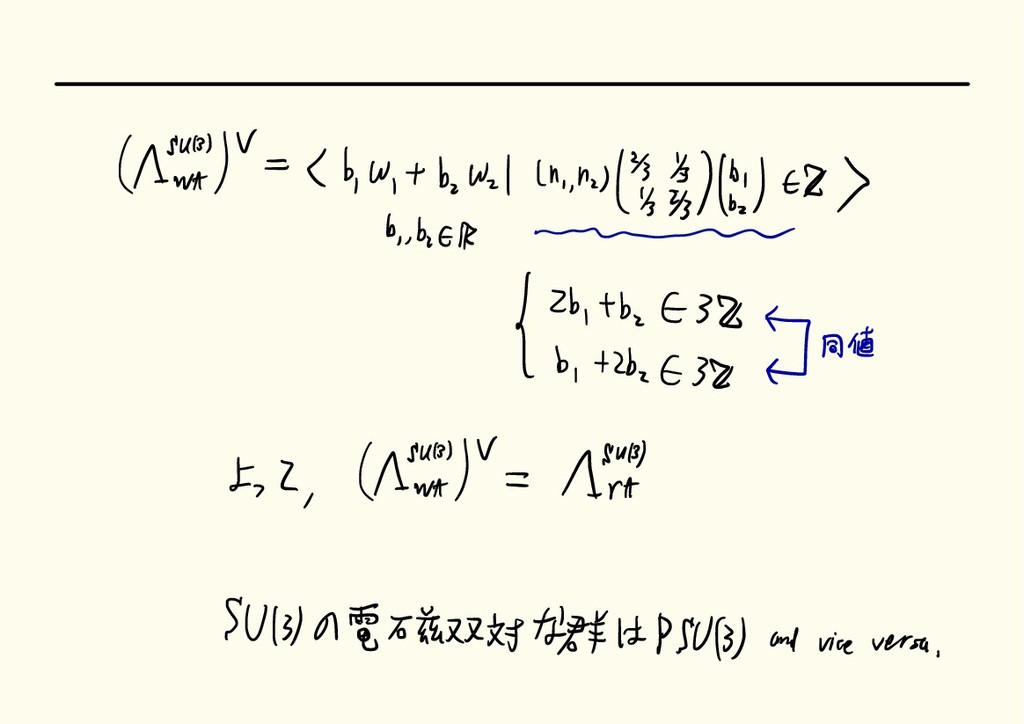 (Λ_{wt}^{SU(3)})^∨ = < b₁ω₁ + b₂ω₂ | (n₁, n₂) (2/3 1/3 1/3 2/3) (b₁ b₂) ∈ ℤ >
b₁, b₂ ∈ ℝ
2b₁ + b₂ ∈ 3ℤ
同値
b₁ + 2b₂ ∈ 3ℤ
よって, (Λ_{wt}^{SU(3)})^∨ = Λ_{rt}^{SU(3)}
SU(3) の電磁双対な群は PSU(3) and vice versa.